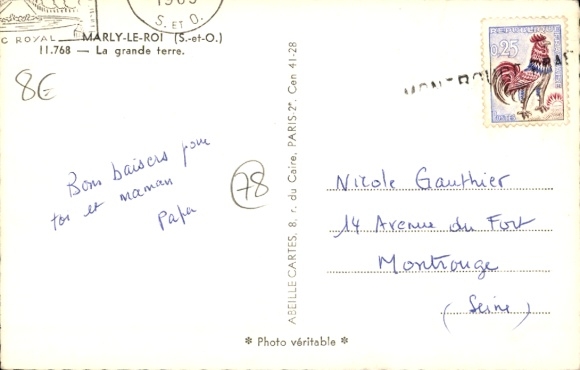 C ROYAL
S. ET O.
MARLY-LE-ROI (S.-et-O.)
11.768 — La grande terre.
8€
Bons baisers pour
toi et maman
Papa
78
ABEILLE-CARTES, 8, r. du Caire, PARIS-2e. Cen 41-28
0,25
POSTES
Nicole Gauthier
14 Avenue du Fort
Montrouge
(Seine)
* Photo véritable *